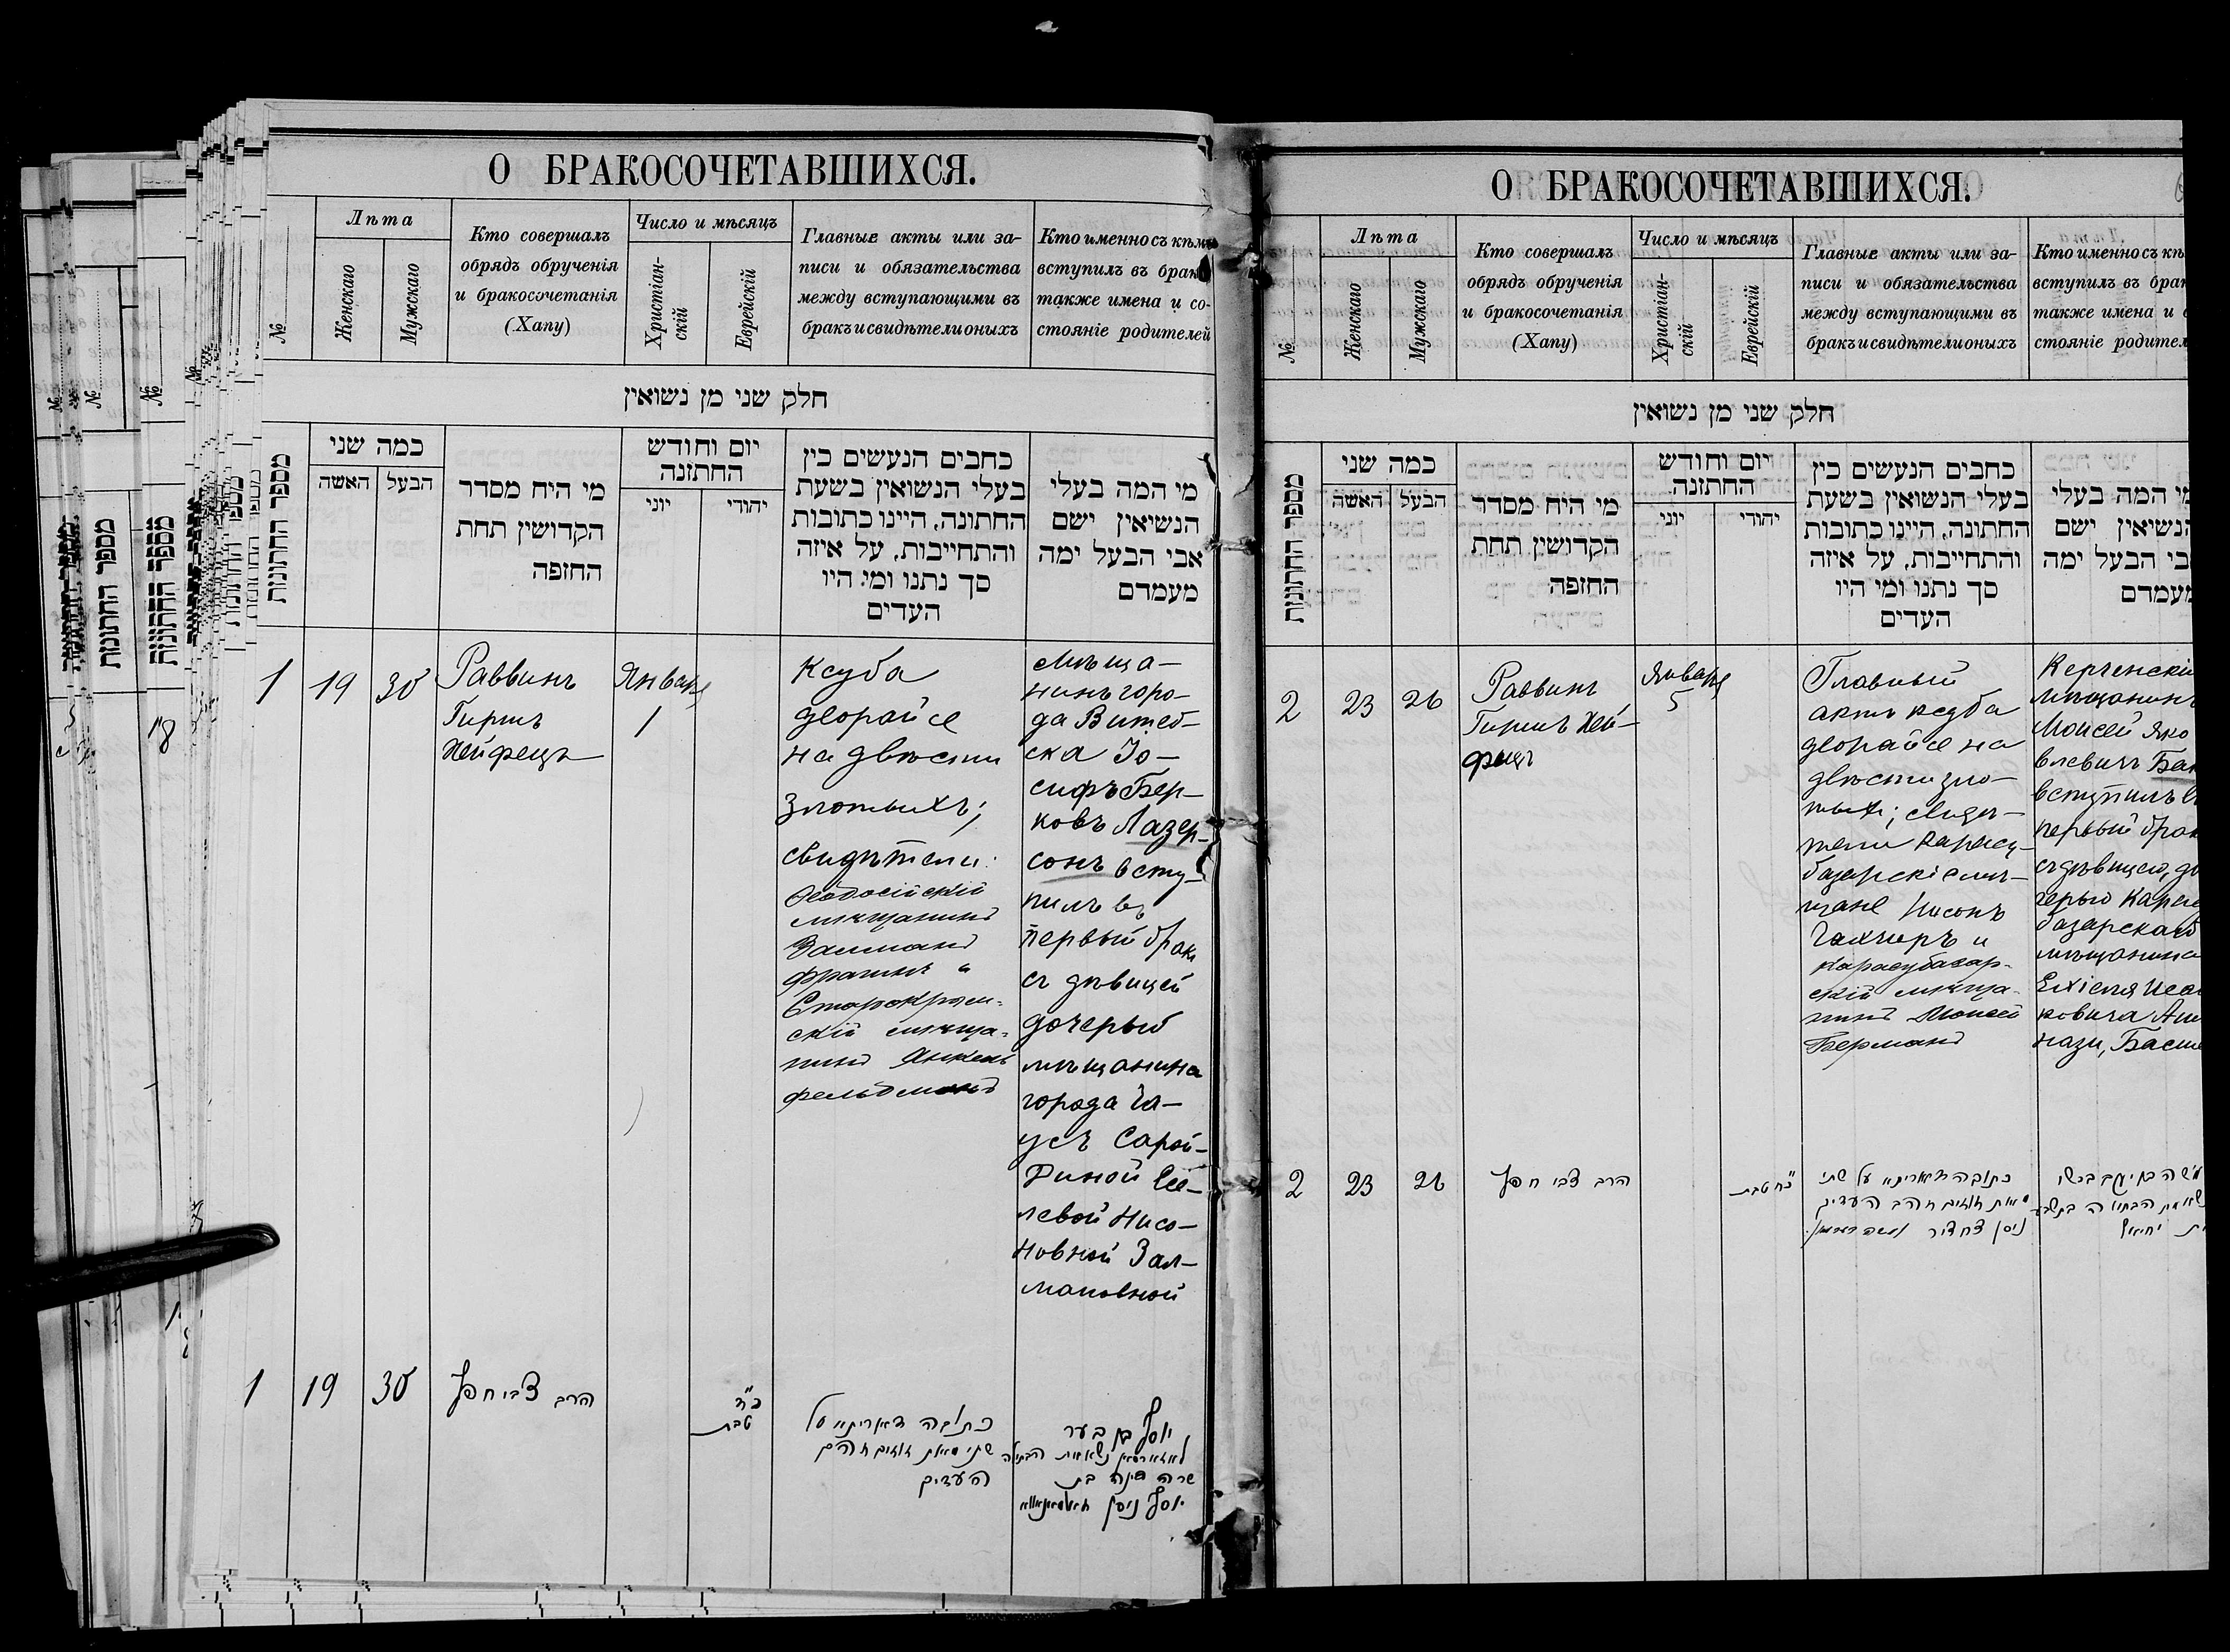 О БРАКОСОЧЕТАВШИХСЯ.
№
Лѣта
Женскаго
Мужскаго
Кто совершалъ
обрядъ обрученія
и бракосочетанія
(Хапу)
Число и мѣсяцъ
Христіан-
скій
Еврейскій
Главные акты или за-
писи и обязательства
между вступающими въ
бракъ и свидѣтели оныхъ
Кто именно съ кѣмъ
вступилъ въ бракъ
также имена и со-
стояніе родителей
חלק שני מן נשואין
מספר החתונות
כמה שני
האשה
הבעל
מי היח מסדר
הקדושין תחת
החופה
יום וחודש
החתונה
יוני
יהודי
כתבים הנעשים בין
בעלי הנשואין בשעת
החתונה, היינו כתובות
והתחייבות, על איזה
סך נתנו ומי היו
העדים
מי המה בעלי
הנשיאין ישם
אבי הבעל ימה
מעמדם
1
19
30
Раввинъ
Гиршъ
Хейфецъ
Января
1
Ксуба
деорайсе
на двѣсти
злотыхъ;
свидѣтели:
Ѳеодосійскій
мѣщанинъ
Залманъ
Фрагинъ и
Старокрым-
скій мѣща-
нинъ Янкель
Фельдманъ
Мѣща-
нинъ горо-
да Витеб-
ска Іо-
сифъ Бер-
ковъ Лазер-
сонъ всту-
пилъ въ
первый бракъ
съ дѣвицей
дочерью
мѣщанина
города Ча-
усъ Сарой-
Диной
левой Нисо-
новной Зал-
мановной
1
19
30
הרב צבי חפץ
טבת
כתובה דאריתא על
שתי מאות זוזים
העדים
יוסף בן בער
נשא את הבתולה
שרה דינה בת
יוסף ניסן
О БРАКОСОЧЕТАВШИХСЯ.
№
Лѣта
Женскаго
Мужскаго
Кто совершалъ
обрядъ обрученія
и бракосочетанія
(Хапу)
Число и мѣсяцъ
Христіан-
скій
Еврейскій
Главные акты или за-
писи и обязательства
между вступающими въ
бракъ и свидѣтели оныхъ
Кто именно съ кѣ
вступилъ въ брак
также имена и
стояніе родител
חלק שני מן נשואין
מספר החתונות
כמה שני
האשה
הבעל
מי היח מסדר
הקדושין תחת
החופה
יום וחודש
החתונה
יוני
יהודי
כתבים הנעשים בין
בעלי הנשואין בשעת
החתונה, היינו כתובות
והתחייבות, על איזה
סך נתנו ומי היו
העדים
מי המה בעלי
הנשיאין ישם
אבי הבעל ימה
מעמדם
2
23
26
Раввинъ
Гиршъ Хей-
фецъ
Января
5
Главный
актъ ксуба
деорайсе на
двѣсти зло-
тыхъ; свидѣ-
тели Карасу-
базарскіе мѣ-
щане Нисонъ
и
Карасубазар-
скій мѣща-
нинъ Моисей
Берманъ
Керченскій
мѣщанинъ
Моисей Яко
влевичъ Бак
вступилъ въ
первый брак
съ дѣвицею, до
черью Карасу
базарскаго
мѣщанина
Ехіеля Исаа
ковича Аш
нази, Басше
2
23
26
הרב צבי חפץ
כ״ח טבת
כתובה דאריתא על שתי
מאות זוזים העדים
ניסן
משה בן יעקב
נשא את הבתולה
בת יחיאל